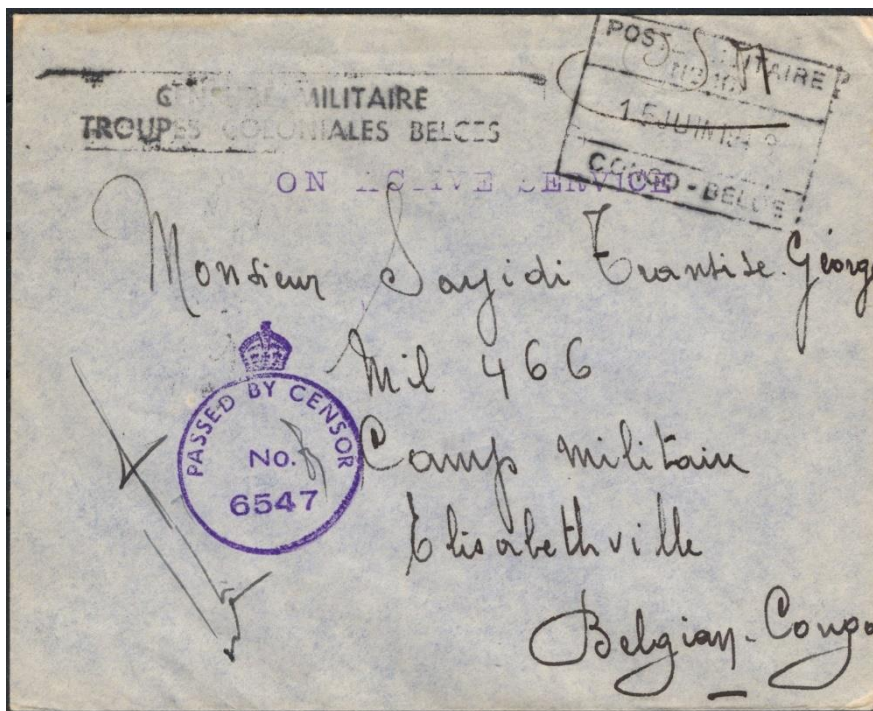 CENSURE MILITAIRE
TROUPES COLONIALES BELGES
POSTE MILITAIRE
15 JUIN 194
CONGO-BELGE
ON ACTIVE SERVICE
Monsieur Sayidi Georg
Mil 466
Camp Militaire
Elisabethville
Belgian-Congo
PASSED BY CENSOR
No.
6547